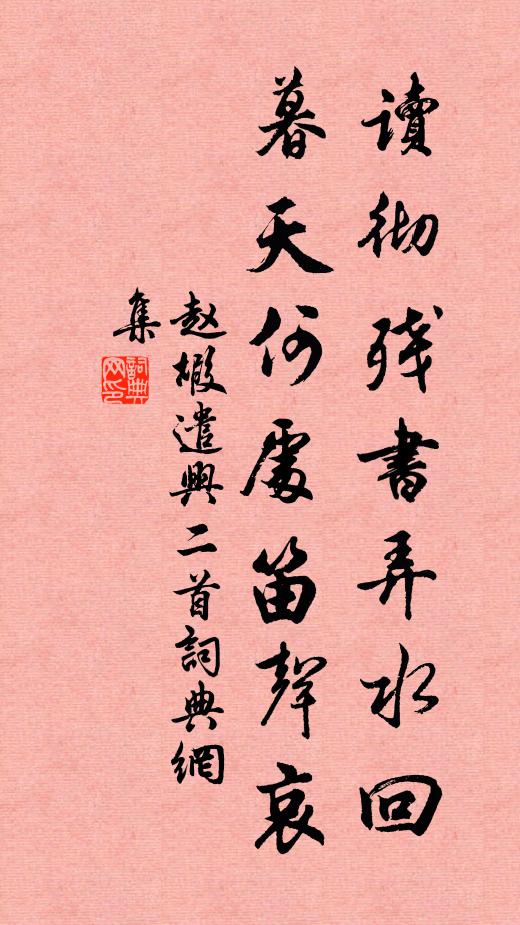 讀彻残書弄水回
暮天何處笛聲哀
赵嘏遣興二首詞典網
集
詞典
网印